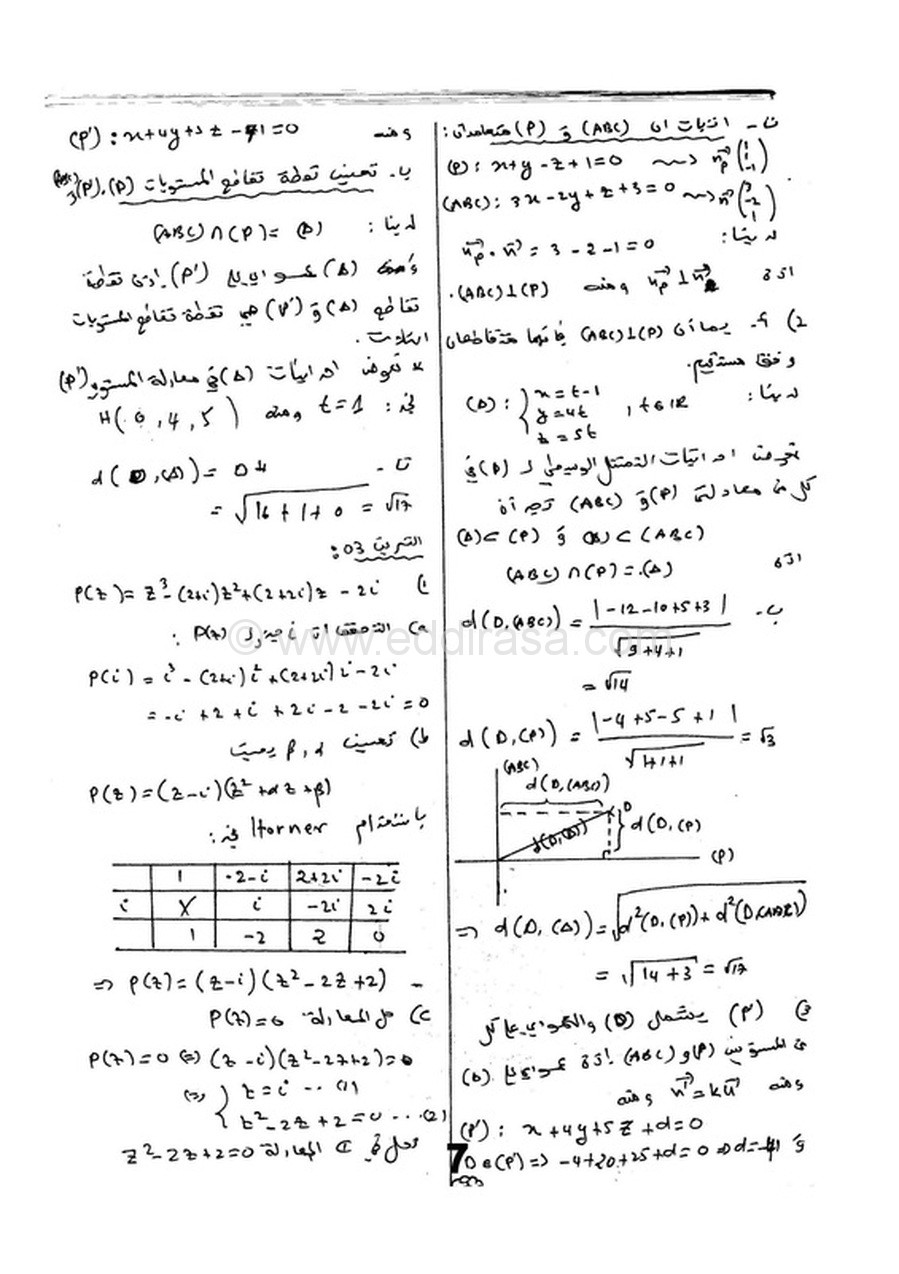 ثا - اثبات ان (ABC) و (P) متعامدان:
(P): x+y-z+1=0 ⇝ n⃗p (1 1 -1)
(ABC): 3x-2y+z+3=0 ⇝ n⃗ (3 -2 1)
لدينا:
n⃗p . n⃗ = 3-2-1=0
اذن n⃗p ⊥ n⃗ ومنه (ABC)⊥(P).
2) أ- بما أن (ABC)⊥(P) فانهما متقاطعان
وفقا مستقيم.
لدينا: (Δ): { x=t-1 y=4t z=5t , t∈IR
نعوض احداثيات التمثيل الوسيطي لـ (Δ) في
كل من معادلتي (P) و (ABC) نجد أن
(Δ)⊂(P) و (Δ)⊂(ABC)
اذن (ABC)∩(P)=(Δ)
ب- d(D,(ABC)) = |-12-10+5+3| / √9+4+1
= √14
d(D,(P)) = |-4+5-5+1| / √1+1+1 = √3
(ABC)
d(D,(ABC))
D
d(D,(Δ))
d(D,(P))
(P)
⇒ d(D,(Δ)) = √d²(D,(P))+d²(D,(ABC))
= √14+3 = √17
3) (P') يشمل (D) والعمودي على كل
من المستويين (P) و (ABC) اذن عمودي على (Δ)
ومنه n⃗' = k u⃗ ومنه
(P'): x+4y+5z+d=0
و D∈(P') ⇒ -4+20+25+d=0 ⇒ d=-41
ومنه (P'): x+4y+5z-41=0
ب- تعيين نقطة تقاطع المستويات (P)، (P') و (ABC)
لدينا: (ABC)∩(P)=(Δ)
(Δ) عمودي على (P') اذن نقطة
تقاطع (Δ) و (P') هي نقطة تقاطع المستويات
الثلاث.
* نعوض احداثيات (Δ) في معادلة المستوي (P')
نجد: t=1 ومنه H(0,4,5)
ثا - d(D,(Δ)) = DH
= √16+1+0 = √17
التمرين 03:
1) P(z)= z³-(2+i)z²+(2+2i)z-2i
a) التحقق ان i جذر لـ P(z):
P(i) = i³-(2+i)i²+(2+2i)i-2i
= -i+2+i+2i-2-2i=0
b) تعيين α, β بحيث
P(z)=(z-i)(z²+αz+β)
باستخدام Horner نجد:
1 -2-i 2+2i -2i
i X i -2i 2i
1 -2 2 0
⇒ P(z)=(z-i)(z²-2z+2)
c) حل المعادلة P(z)=0
P(z)=0 ⇔ (z-i)(z²-2z+2)=0
⇔ { z=i ... (1)
z²-2z+2=0 ... (2)
نحل في ℂ المعادلة z²-2z+2=0
7
© www.eddirasa.com